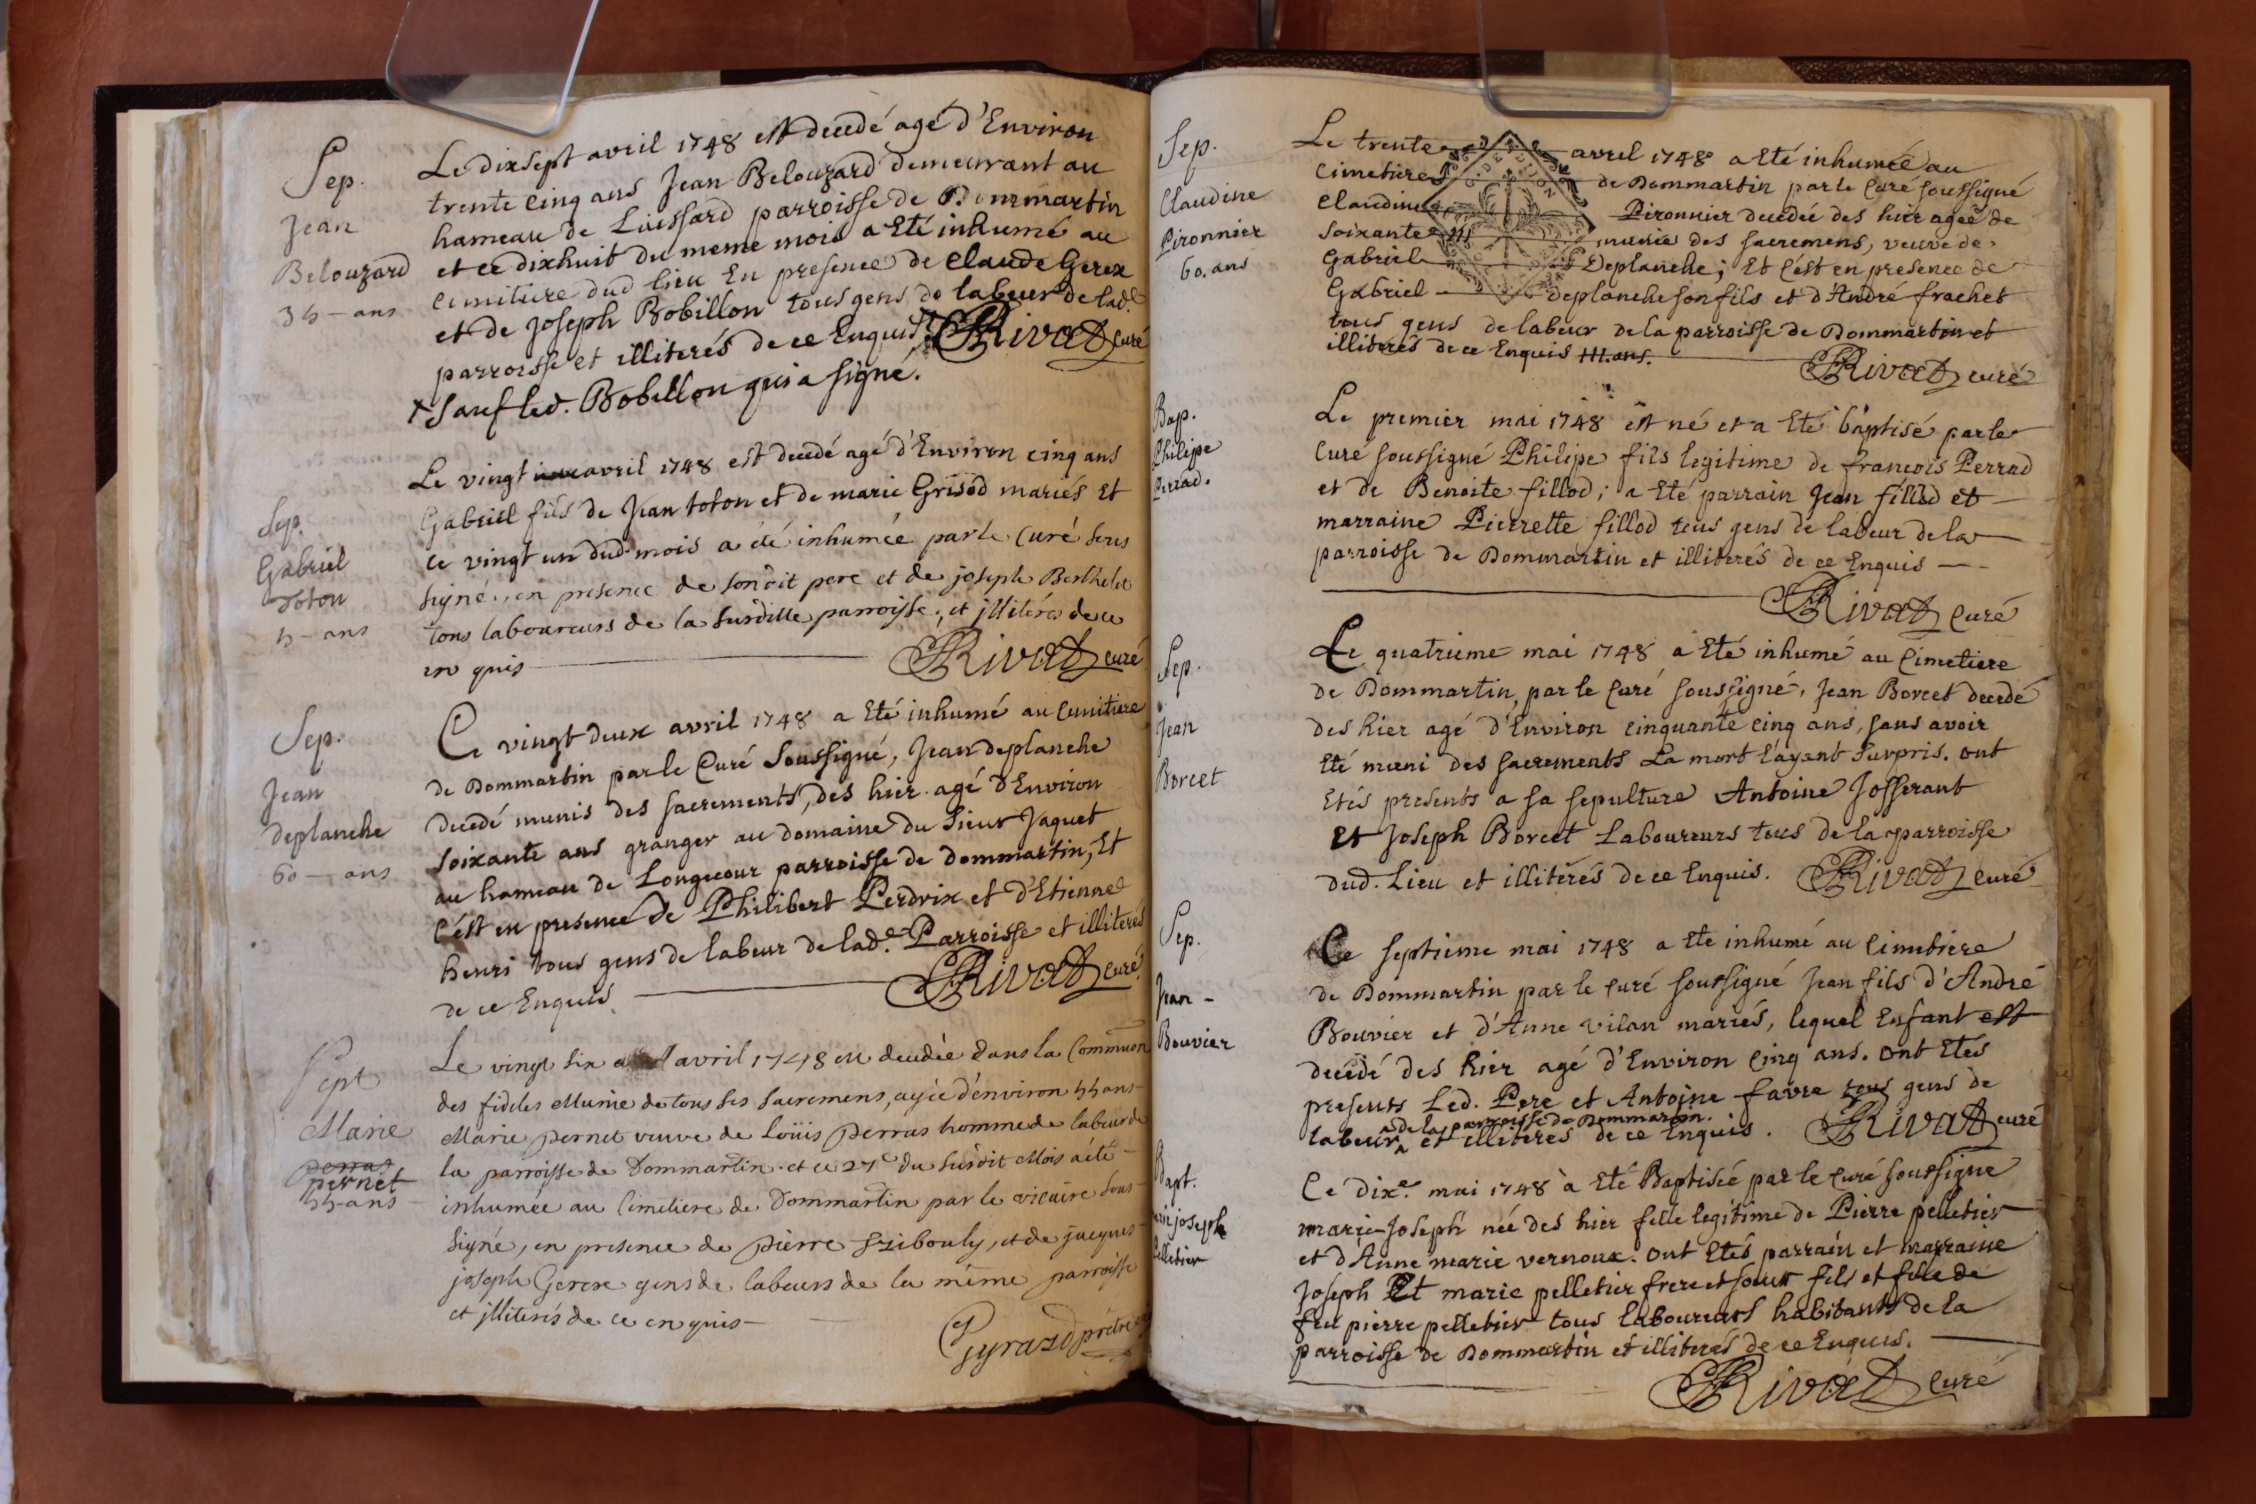 Sep.
Jean
Belouzard
35 - ans
Le dixsept avril 1748 est decedé agé d'Environ
trente cinq ans Jean Belouzard demeurant au
hameau de Luissard parroisse de Dommartin
et ce dixhuit du meme mois a Eté inhumé au
cimitiere dud lieu En presence de Claude Gerex
et de Joseph Bobillon tous gens de labeur de lad.e
parroisse et illiterés de ce Enquis + Rivat curé
+ sauf led. Bobillon qui a signé.
Sep.
Gabriel
toton
5 - ans
Le vingt avril 1748 est decedé agé d'Environ cinq ans
Gabriel fils de Jean toton et de marie Grisod mariés Et
ce vingt un dud. mois a été inhumée par le Curé sous
signé, en presence de son dit pere et de joseph Berthelet
tous laboureurs de la susditte parroisse, et jlliterés de ce
en quis Rivat curé
Sep.
Jean
deplanche
60 - ans
Ce vingt deux avril 1748 a Eté inhumé au Cimitiere
de Dommartin par le Curé Soussigné, Jean deplanche
decedé munis des sacrements, des hier agé d'Environ
soixante ans granger au domaine du Sieur Jaquet
au hameau de Longecour parroisse de dommartin, Et
c'est en presence de Philibert Perdrix et d'Etienne
henri tous gens de labeur de lad.e Parroisse et illiterés
de ce Enquis. Rivat curé
Sept
Marie
perras
pernet
55-ans
Le vingt six avril 1748 est decedée dans la Communion
des fideles Munie de tous ses sacremens, agée d'environ 55 ans
Marie pernet veuve de Loüis perras homme de labeur de
la parroisse de Dommartin. et ce 27e du susdit Mois a été
inhumée au Cimetiere de Dommartin par le vicaire sous
signé, en presence de pierre fribouly, et de jacques
joseph Gerex gens de labeurs de la même parroisse
et jlliterés de ce en quis
Gyraud prêtre
Sep.
Claudine
Pironnier
60. ans
Le trente avril 1748 a Eté inhumée au
cimetiere de Dommartin par le Curé soussigné
Claudine Pironnier decedée des hier agée de
soixante ans munie des sacremens, veuve de
Gabriel Deplanche; Et c'est en presence de
Gabriel deplanche son fils et d'André frachet
tous gens de labeur de la parroisse de Dommartin et
illiterés de ce Enquis
Rivat curé
Bap.
Philipe
Perrad.
Le premier mai 1748 est né et a Eté baptisé par le
Curé soussigné Philipe fils legitime de francois Perrad
et de Benoite fillod; a Eté parrain Jean fillod et
marraine Pierrette fillod tous gens de labeur de la
parroisse de Dommartin et illiterés de ce Enquis
Rivat Curé
Sep.
Jean
Borcet
Le quatrieme mai 1748 a Eté inhumé au Cimetiere
de Dommartin, par le Curé soussigné, Jean Borcet decedé
des hier agé d'Environ cinquante cinq ans, sans avoir
Eté muni des sacrements La mort l'ayant Surpris. ont
Etés presents a sa sepulture Antoine Josserant
Et Joseph Borcet Laboureurs tous de la parroisse
dud. Lieu et illiterés de ce Enquis. Rivat curé
Sep.
Jean -
Bouvier
Ce septieme mai 1748 a Eté inhumé au Cimetiere
de Dommartin par le Curé soussigné Jean fils d'André
Bouvier et d'Anne vilan mariés, lequel Enfant est
decedé des hier agé d'Environ Cinq ans. ont Etés
presents Led. Pere et Antoine favre tous gens de
de la parroisse de Dommartin.
labeur et illiterés de ce Enquis. Rivat curé
Bapt.
joseph
Pelletier
Ce dixe. mai 1748 à Eté Baptisée par le Curé soussigné
marie-Joseph née des hier fille legitime de Pierre pelletier
et d'Anne marie vernoux. ont Etés parrain et marraine
Joseph Et marie pelletier frere et sœur fils et fille de
feu pierre pelletier tous laboureurs habitants de la
parroisse de Dommartin et illiterés de ce Enquis.
Rivat Curé